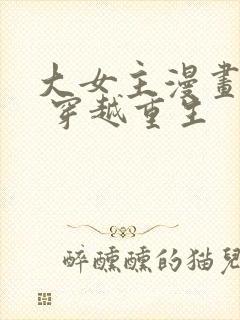 大女主漫畫
穿越重生
醉醺醺的猫兒